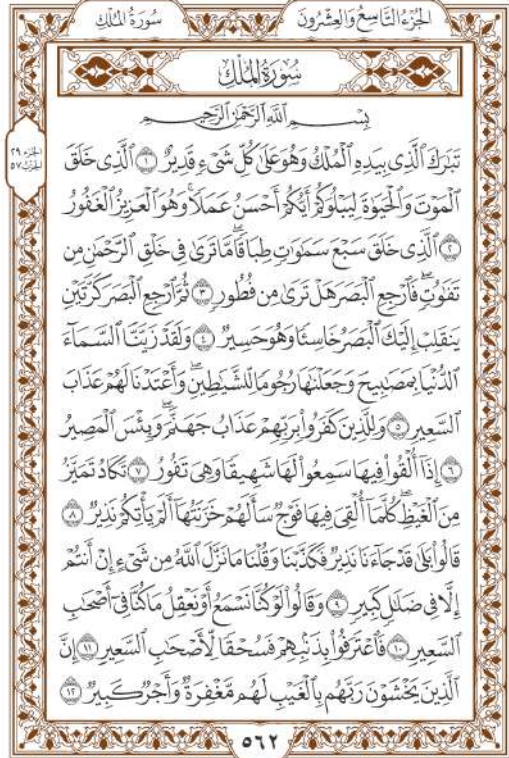 سُورَةُ المُلْكِ
الجُزْءُ التَّاسِعُ وَالعِشْرُونَ
الجزء ٢٩
الحزب ٥٧
سُورَةُ المُلْكِ
بِسْمِ ٱللَّهِ ٱلرَّحْمَٰنِ ٱلرَّحِيمِ
تَبَٰرَكَ ٱلَّذِى بِيَدِهِ ٱلْمُلْكُ وَهُوَ عَلَىٰ كُلِّ شَىْءٍ قَدِيرٌ ١ ٱلَّذِى خَلَقَ
ٱلْمَوْتَ وَٱلْحَيَوٰةَ لِيَبْلُوَكُمْ أَيُّكُمْ أَحْسَنُ عَمَلًا وَهُوَ ٱلْعَزِيزُ ٱلْغَفُورُ
٢ ٱلَّذِى خَلَقَ سَبْعَ سَمَٰوَٰتٍ طِبَاقًا مَّا تَرَىٰ فِى خَلْقِ ٱلرَّحْمَٰنِ مِن
تَفَٰوُتٍ فَٱرْجِعِ ٱلْبَصَرَ هَلْ تَرَىٰ مِن فُطُورٍ ٣ ثُمَّ ٱرْجِعِ ٱلْبَصَرَ كَرَّتَيْنِ
يَنقَلِبْ إِلَيْكَ ٱلْبَصَرُ خَاسِئًا وَهُوَ حَسِيرٌ ٤ وَلَقَدْ زَيَّنَّا ٱلسَّمَآءَ
ٱلدُّنْيَا بِمَصَٰبِيحَ وَجَعَلْنَٰهَا رُجُومًا لِّلشَّيَٰطِينِ وَأَعْتَدْنَا لَهُمْ عَذَابَ
ٱلسَّعِيرِ ٥ وَلِلَّذِينَ كَفَرُوا۟ بِرَبِّهِمْ عَذَابُ جَهَنَّمَ وَبِئْسَ ٱلْمَصِيرُ
٦ إِذَآ أُلْقُوا۟ فِيهَا سَمِعُوا۟ لَهَا شَهِيقًا وَهِىَ تَفُورُ ٧ تَكَادُ تَمَيَّزُ
مِنَ ٱلْغَيْظِ كُلَّمَآ أُلْقِىَ فِيهَا فَوْجٌ سَأَلَهُمْ خَزَنَتُهَآ أَلَمْ يَأْتِكُمْ نَذِيرٌ ٨
قَالُوا۟ بَلَىٰ قَدْ جَآءَنَا نَذِيرٌ فَكَذَّبْنَا وَقُلْنَا مَا نَزَّلَ ٱللَّهُ مِن شَىْءٍ إِنْ أَنتُمْ
إِلَّا فِى ضَلَٰلٍ كَبِيرٍ ٩ وَقَالُوا۟ لَوْ كُنَّا نَسْمَعُ أَوْ نَعْقِلُ مَا كُنَّا فِىٓ أَصْحَٰبِ
ٱلسَّعِيرِ ١٠ فَٱعْتَرَفُوا۟ بِذَنۢبِهِمْ فَسُحْقًا لِّأَصْحَٰبِ ٱلسَّعِيرِ ١١ إِنَّ
ٱلَّذِينَ يَخْشَوْنَ رَبَّهُم بِٱلْغَيْبِ لَهُم مَّغْفِرَةٌ وَأَجْرٌ كَبِيرٌ ١٢
٥٦٢